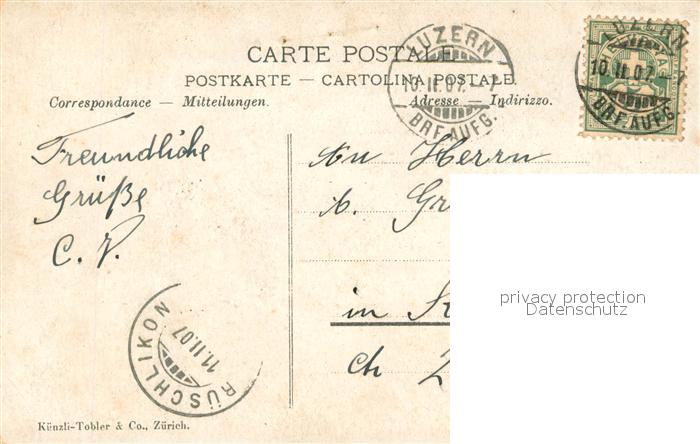 CARTE POSTALE.
POSTKARTE — CARTOLINA POSTALE.
Correspondance — Mitteilungen.
Adresse — Indirizzo.
LUZERN
10.II.07.–7
BRF.AUFG.
LUZERN
10.II.07.–7
BRF.AUFG.
Freundliche
Grüße
C. P.
An Herrn
A. Gr
in
ch
RÜSCHLIKON
11.II.07
privacy protection
Datenschutz
Künzli-Tobler & Co., Zürich.